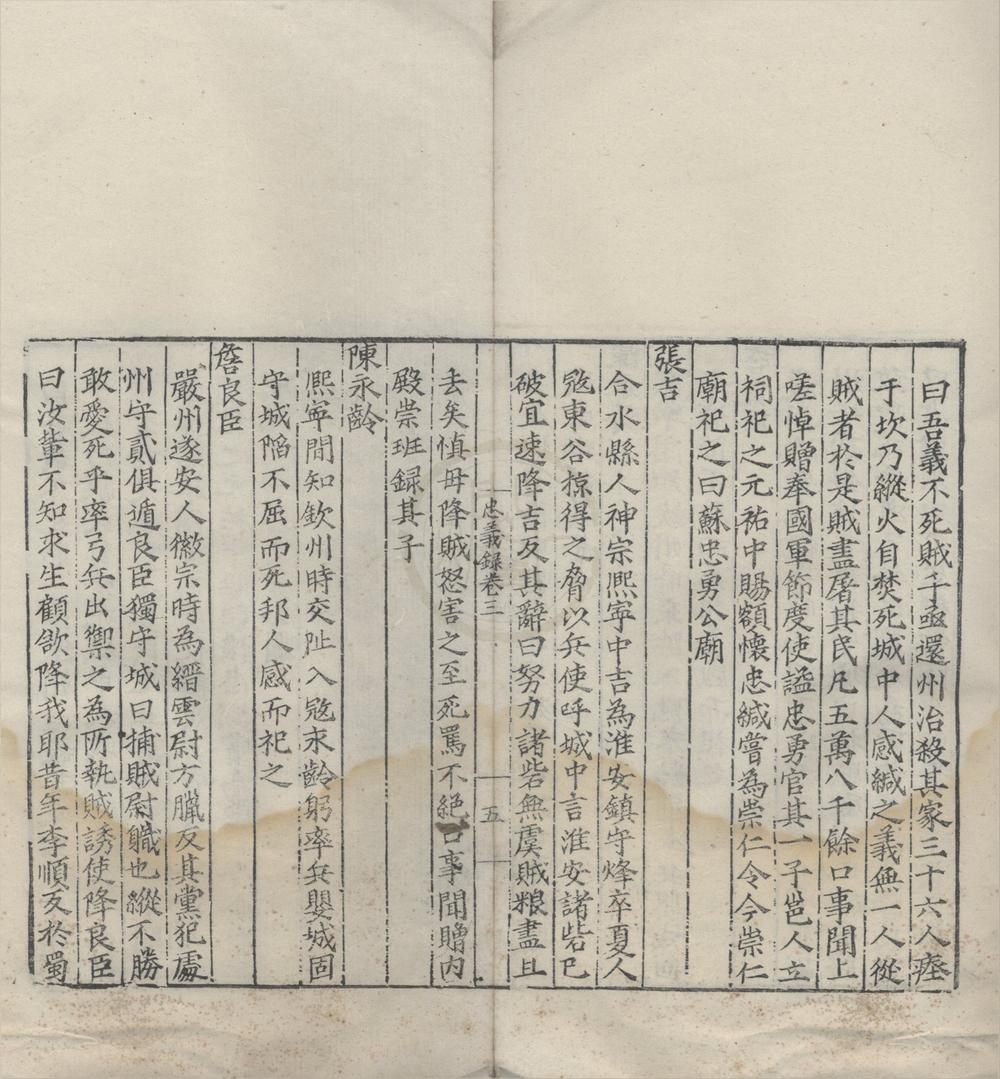 曰吾義不死賊手亟還州治殺其家三十六人瘞
于坎乃縱火自焚死城中人感緘之義無一人從
賊者於是賊盡屠其民凡五萬八千餘口事聞上
嗟悼贈奉國軍節度使謚忠勇官其一子邕人立
祠祀之元祐中賜額懷忠緘嘗為崇仁令今崇仁
廟祀之曰蘇忠勇公廟
張吉
合水縣人神宗熙寧中吉為淮安鎮守烽卒夏人
宼東谷掠得之脅以兵使呼城中言淮安諸砦已
破宜速降吉反其辭曰努力諸砦無虞賊粮盡且
忠義録卷三
五
去矣慎毋降賊怒害之至死罵不絕口事聞贈内
殿崇班録其子
陳永齡
熈寧間知欽州時交阯入宼永齡躬率兵嬰城固
守城陷不屈而死邦人感而祀之
詹良臣
嚴州遂安人徽宗時為縉雲尉方臘反其黨犯處
州守貳俱遁良臣獨守城曰捕賊尉職也縱不勝
敢愛死乎率弓兵出禦之為所執賊誘使降良臣
曰汝輩不知求生顧欲降我耶昔年李順反於蜀